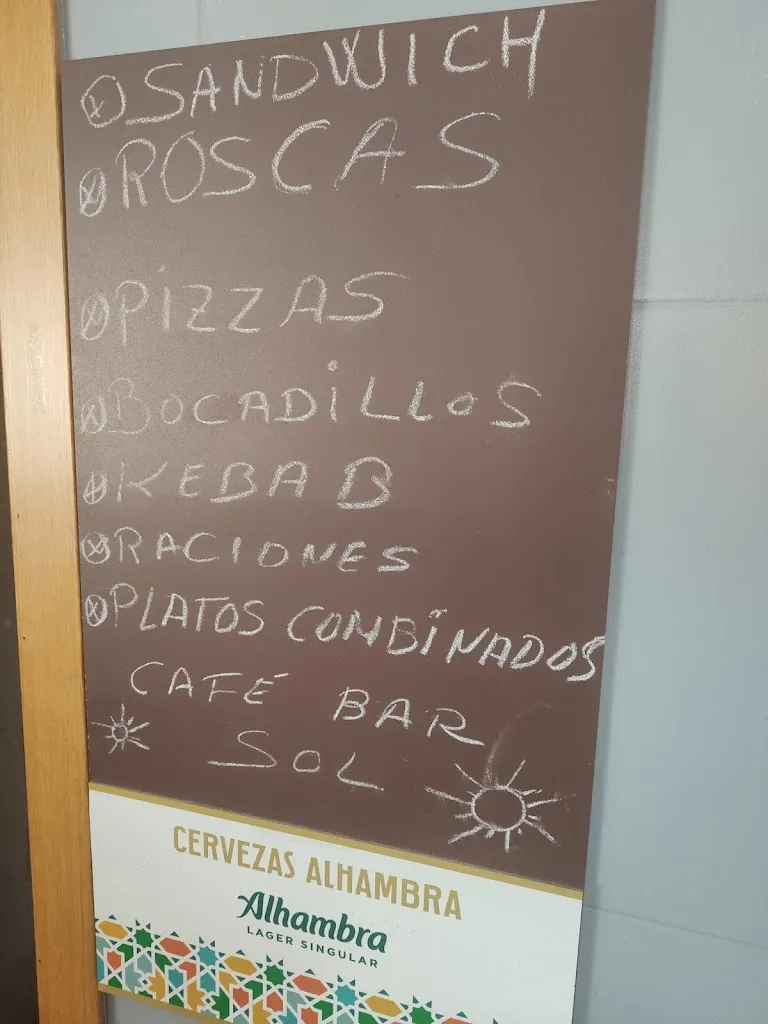 SANDWICH
ROSCAS
PiZZAS
BOCADiLLOS
KEBAB
RACIONES
PLATOS COMBiNADOS
CAFÉ BAR
SOL
CERVEZAS ALHAMBRA
Alhambra
LAGER SINGULAR